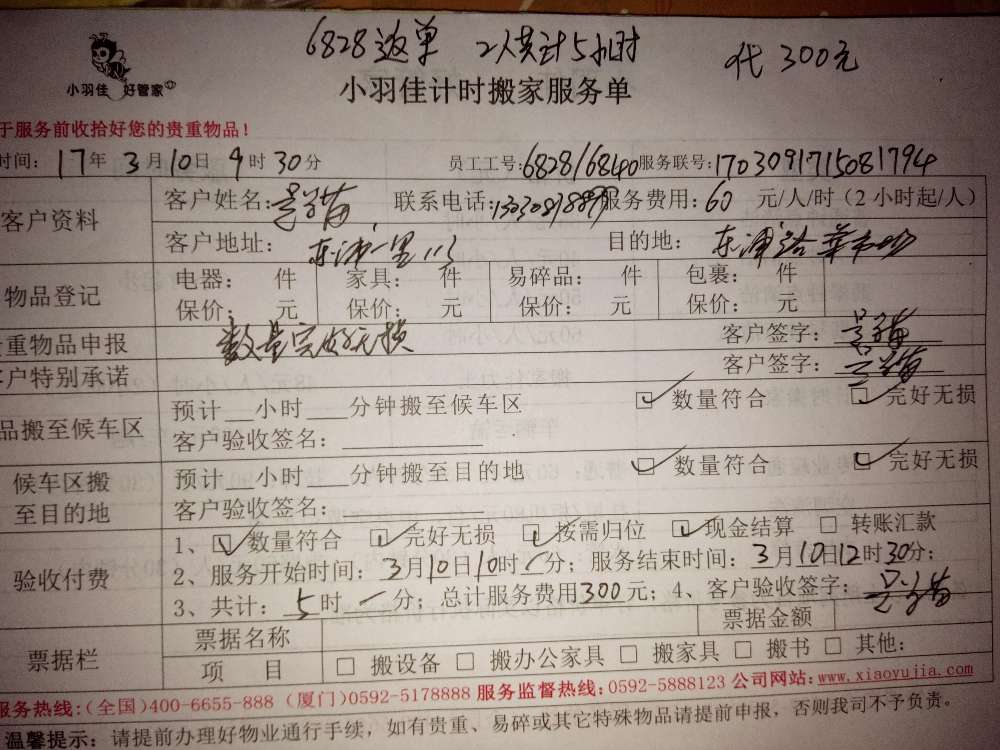 6828返单 2人共计5小时 代300元
小羽佳 好管家
小羽佳计时搬家服务单
于服务前收拾好您的贵重物品！
时间：17年3月10日9时30分 员工工号：6828/6840 服务联号：170309171508 1794
客户资料
客户姓名： 联系电话： 服务费用：60 元/人/时（2小时起/人）
客户地址：东浦一里113 目的地：东浦路
物品登记
电器： 件 家具： 件 易碎品： 件 包裹： 件
保价： 元 保价： 元 保价： 元 保价： 元
重物品申报 数量完好无损 客户签字：
户特别承诺 客户签字：
品搬至候车区
预计__小时___分钟搬至候车区 ☑数量符合 ☑完好无损
客户验收签名：
候车区搬至目的地
预计__小时___分钟搬至目的地 ☑数量符合 ☑完好无损
客户验收签名：
验收付费
1、☑数量符合 ☑完好无损 ☑按需归位 ☑现金结算 □ 转账汇款
2、服务开始时间：3月10日10时/分；服务结束时间：3月10日12时30分；
3、共计：5时/分；总计服务费用300元；4、客户验收签字：
票据栏
票据名称 票据金额
项 目 □ 搬设备 □ 搬办公家具 □ 搬家具 □ 搬书 □ 其他：
服务热线：(全国)400-6655-888 (厦门)0592-5178888 服务监督热线：0592-5888123 公司网站：www.xiaoyujia.com
温馨提示：请提前办理好物业通行手续，如有贵重、易碎或其它特殊物品请提前申报，否则我司不予负责。